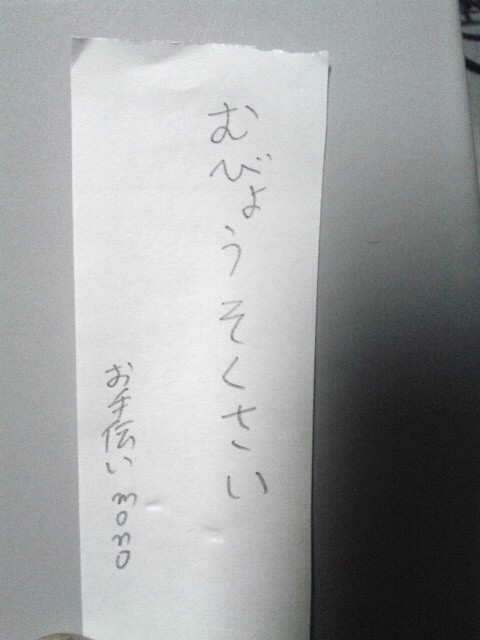 むびょうそくさい
お手伝い momo